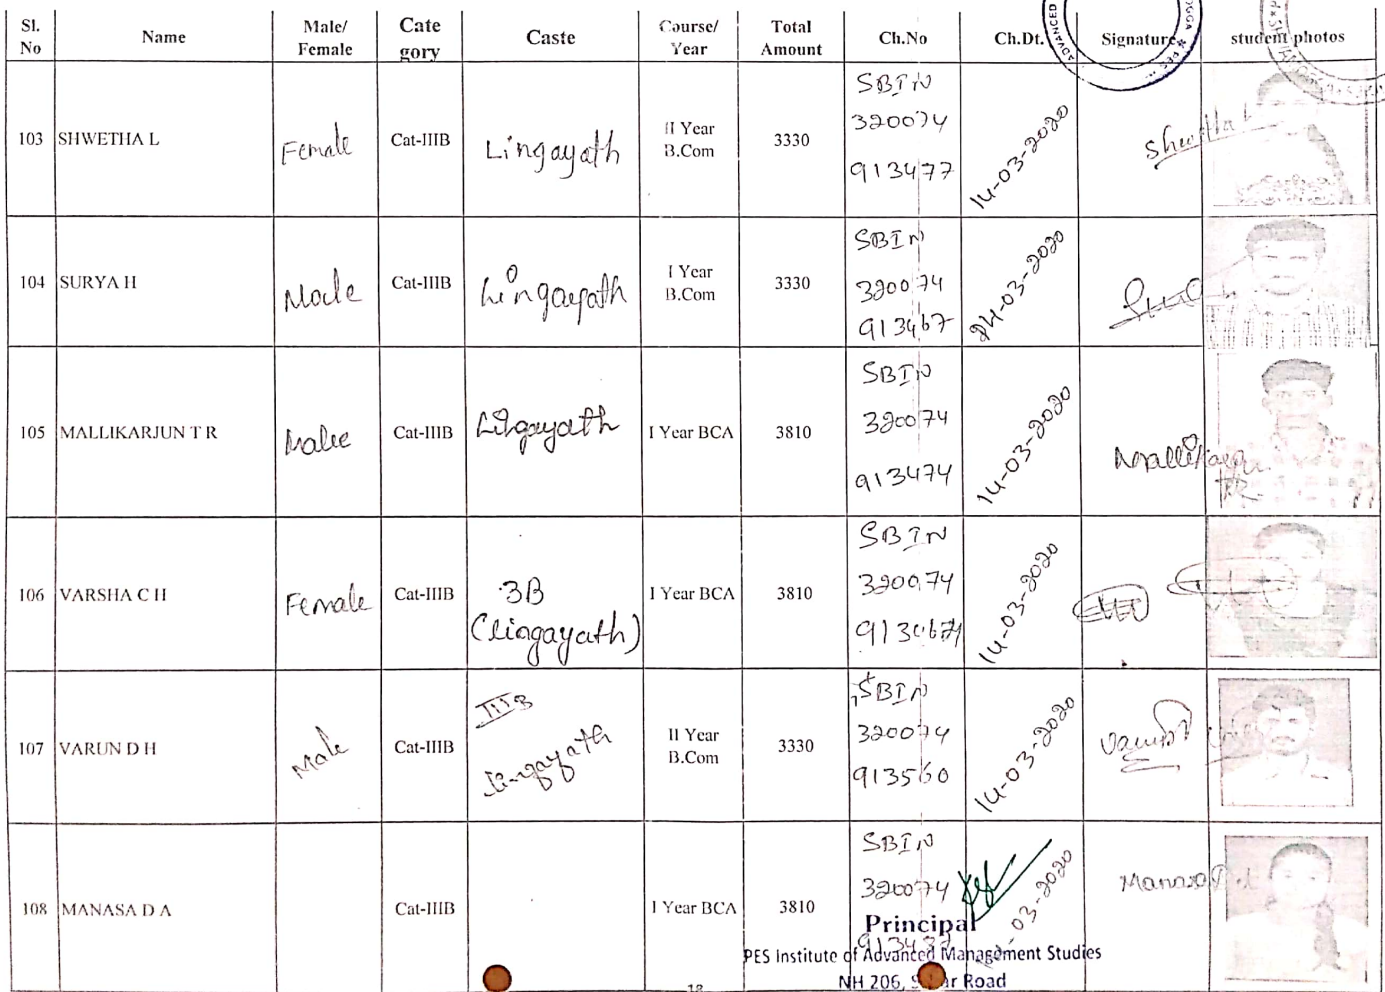 Sl. No Name Male/ Female Cate gory Caste Course/ Year Total Amount Ch.No Ch.Dt. Signature student photos
ADVANCED
103 SHWETHA L Female Cat-IIIB Lingayath II Year B.Com 3330 SBIN 320074 913477 14-03-2020 Shwetha L
104 SURYA H Male Cat-IIIB Lingayath I Year B.Com 3330 SBIN 320074 913467 14-03-2020
105 MALLIKARJUN T R Male Cat-IIIB Lingayath I Year BCA 3810 SBIN 320074 913474 14-03-2020 Mallikarjun TR
106 VARSHA C H Female Cat-IIIB 3B (Lingayath) I Year BCA 3810 SBIN 320074 14-03-2020
107 VARUN D H Male Cat-IIIB IIIB Lingayath II Year B.Com 3330 SBIN 320074 913560 14-03-2020
108 MANASA D A Cat-IIIB I Year BCA 3810 SBIN 320074 -03-2020 Manasa D A
Principal
PES Institute of Advanced Management Studies
NH 206, Road
18